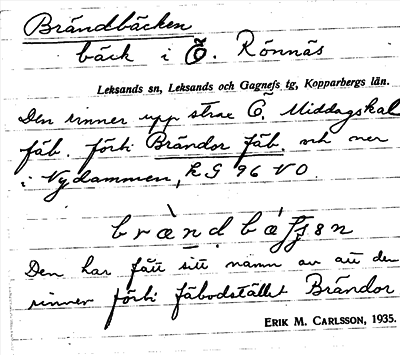 Brändbäcken
bäck i Ö. Rönnäs
Leksands sn, Leksands och Gagnefs tg, Kopparbergs län.
Den rinner upp strax Ö. Middagskal
fäb. förbi Brändor fäb. och ner
i Nydammen, kG 96 VO.
brændbä
Den har fått sitt namn av att den
rinner förbi fäbodstället Brändor
ERIK M. CARLSSON, 1935.